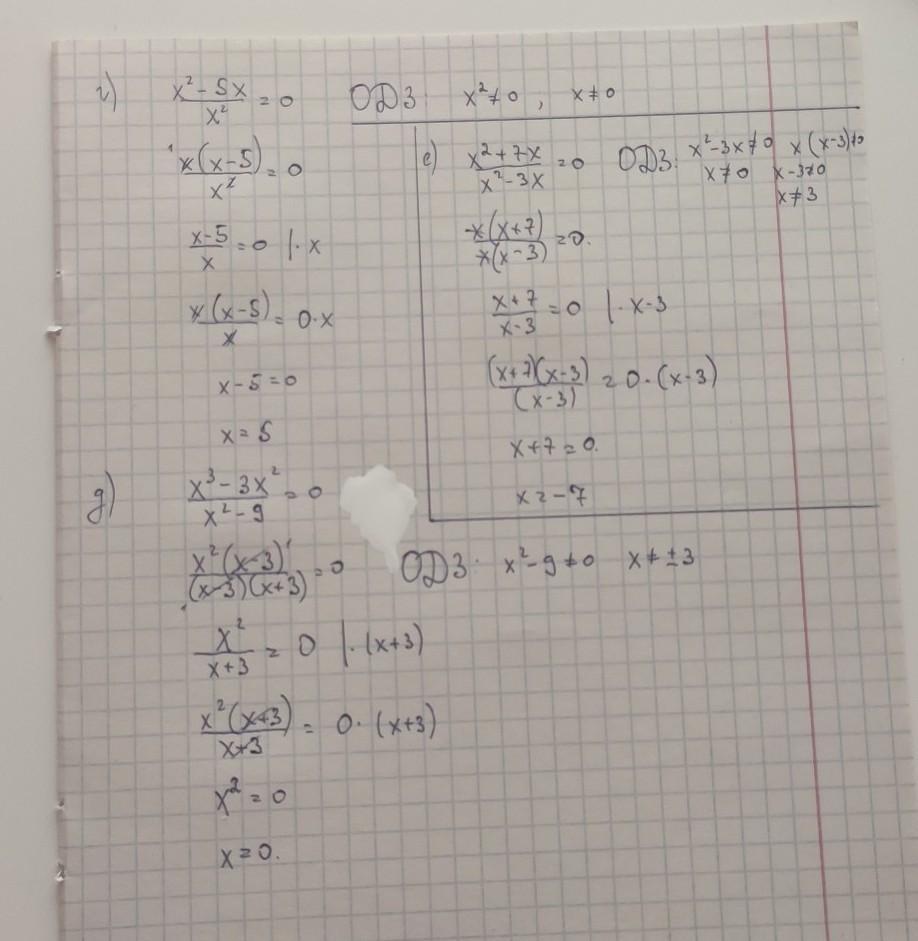 г) (x² - 5x)/x² = 0 ОДЗ: x² ≠ 0, x ≠ 0
x(x-5)/x² = 0
(x-5)/x = 0 |· x
x(x-5)/x = 0·x
x - 5 = 0
x = 5
е) (x² + 7x)/(x² - 3x) = 0 ОДЗ: x² - 3x ≠ 0 x(x-3) ≠ 0
x ≠ 0 x - 3 ≠ 0
x ≠ 3
x(x+7)/x(x-3) = 0.
(x+7)/(x-3) = 0 |· x-3
(x+7)(x-3)/(x-3) = 0·(x-3)
x + 7 = 0.
x = -7
д) (x³ - 3x²)/(x² - 9) = 0
x²(x-3)/(x-3)(x+3) = 0 ОДЗ: x² - 9 ≠ 0 x ≠ ±3
x²/(x+3) = 0 |· (x+3)
x²(x+3)/(x+3) = 0·(x+3)
x² = 0
x = 0.